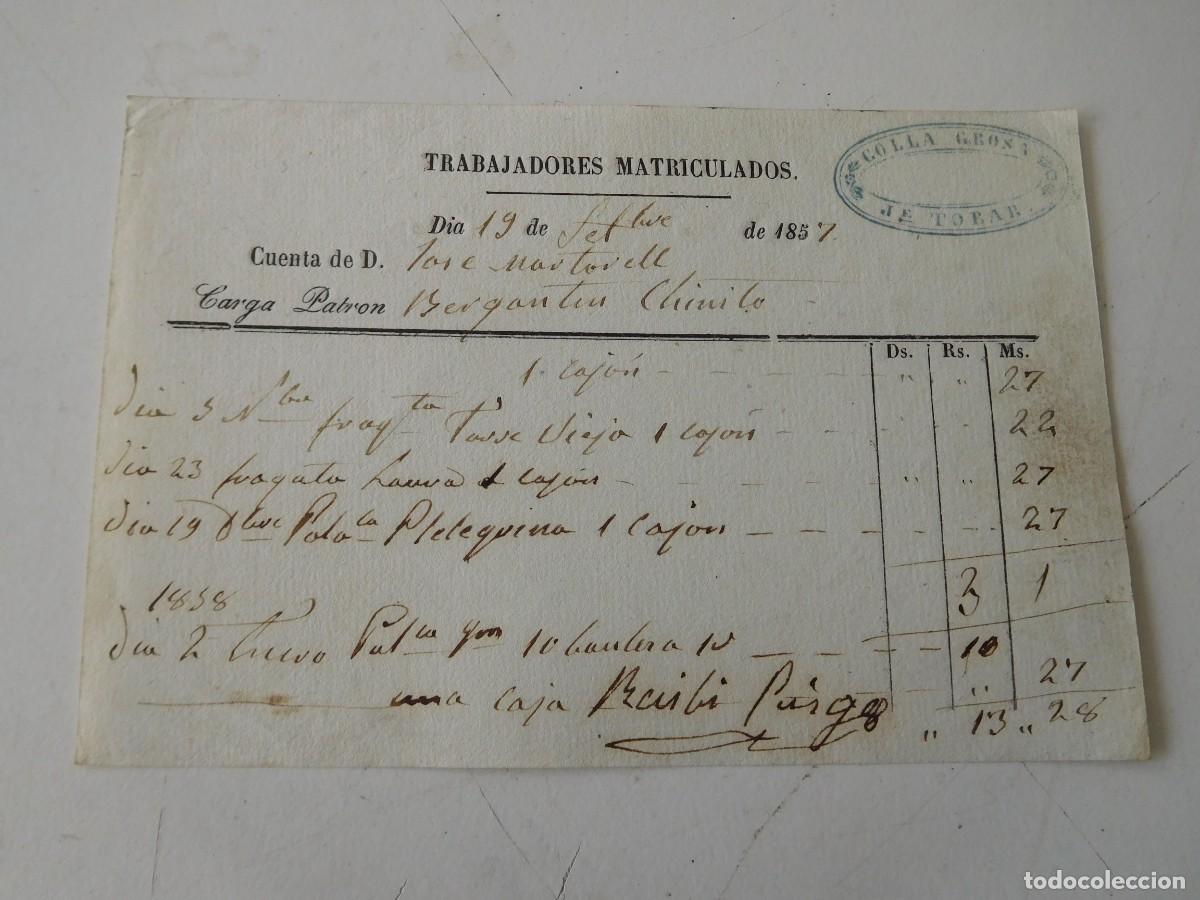 COLLA GROSA
JE TOBAR.
TRABAJADORES MATRICULADOS.
Dia 19 de Setbre de 1857
Cuenta de D. Jose Martorell
Carga Patron Bergantin Chinito
Ds. Rs. Ms.
1 cajón - - - - - " " 27
Dia 3 Nbre fragta Torre Vieja 1 cajón - - - - 22
Dia 23 fragata Laura 1 cajón - - - - " " 27
Dia 19 Dbre Pola 1 cajon - - - - 27
3 1
1858
Dia 2 Enero 10 - - - - 10
una caja Recibi Puig " 27
" 13 " 28
todocoleccion